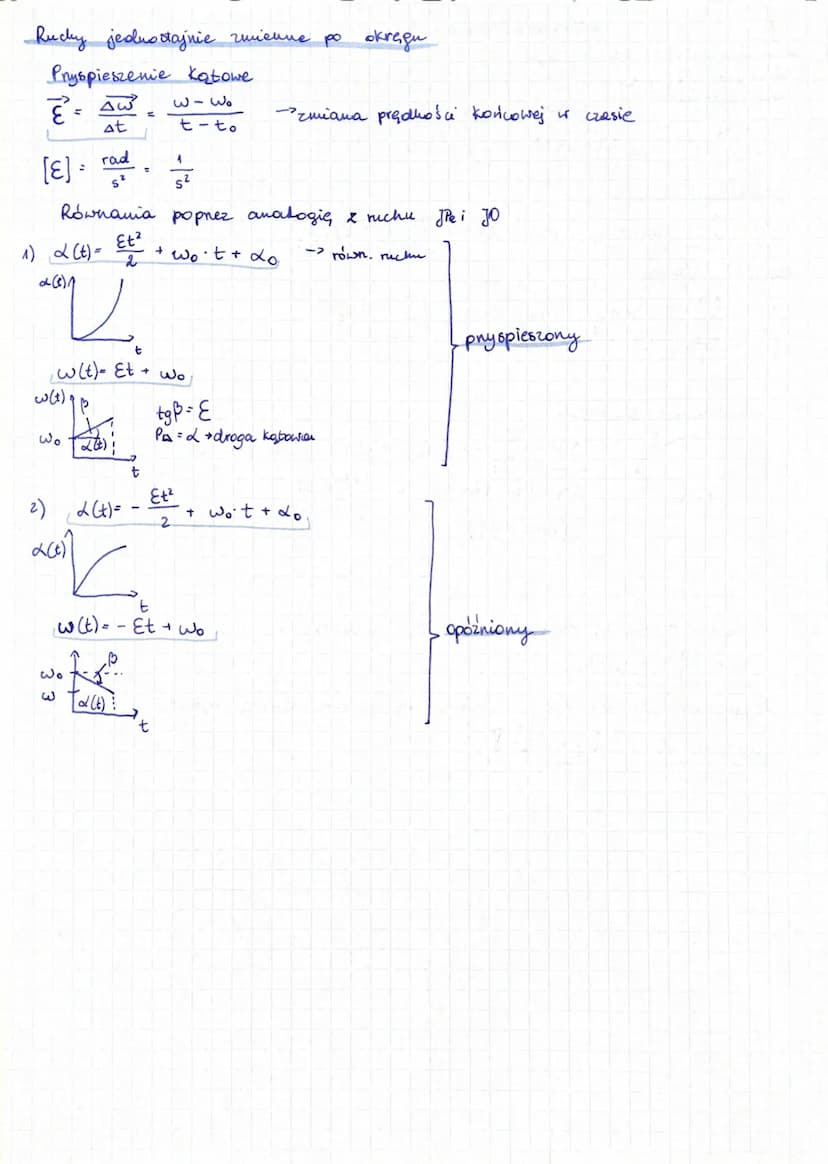 Ruchy jednostajnie zmienne po okręgu
Przyspieszenie kątowe
ε⃗ = Δω⃗/Δt = (ω - ω₀)/(t - t₀) → zmiana prędkości końcowej w czasie
[ε] = rad/s² = 1/s²
Równania poprzez analogię z ruchu JPe i JO
1) α(t) = εt²/2 + ω₀·t + α₀ → równ. ruchu
α(t)
t
ω(t) = εt + ω₀
przyspieszony
ω(t) β
tgβ = ε
ω₀ α(t) = α → droga kątowa
t
2) α(t) = - εt²/2 + ω₀·t + α₀
α(t)
t
ω(t) = - εt + ω₀
opóźniony
β
ω₀
ω α(t)
t